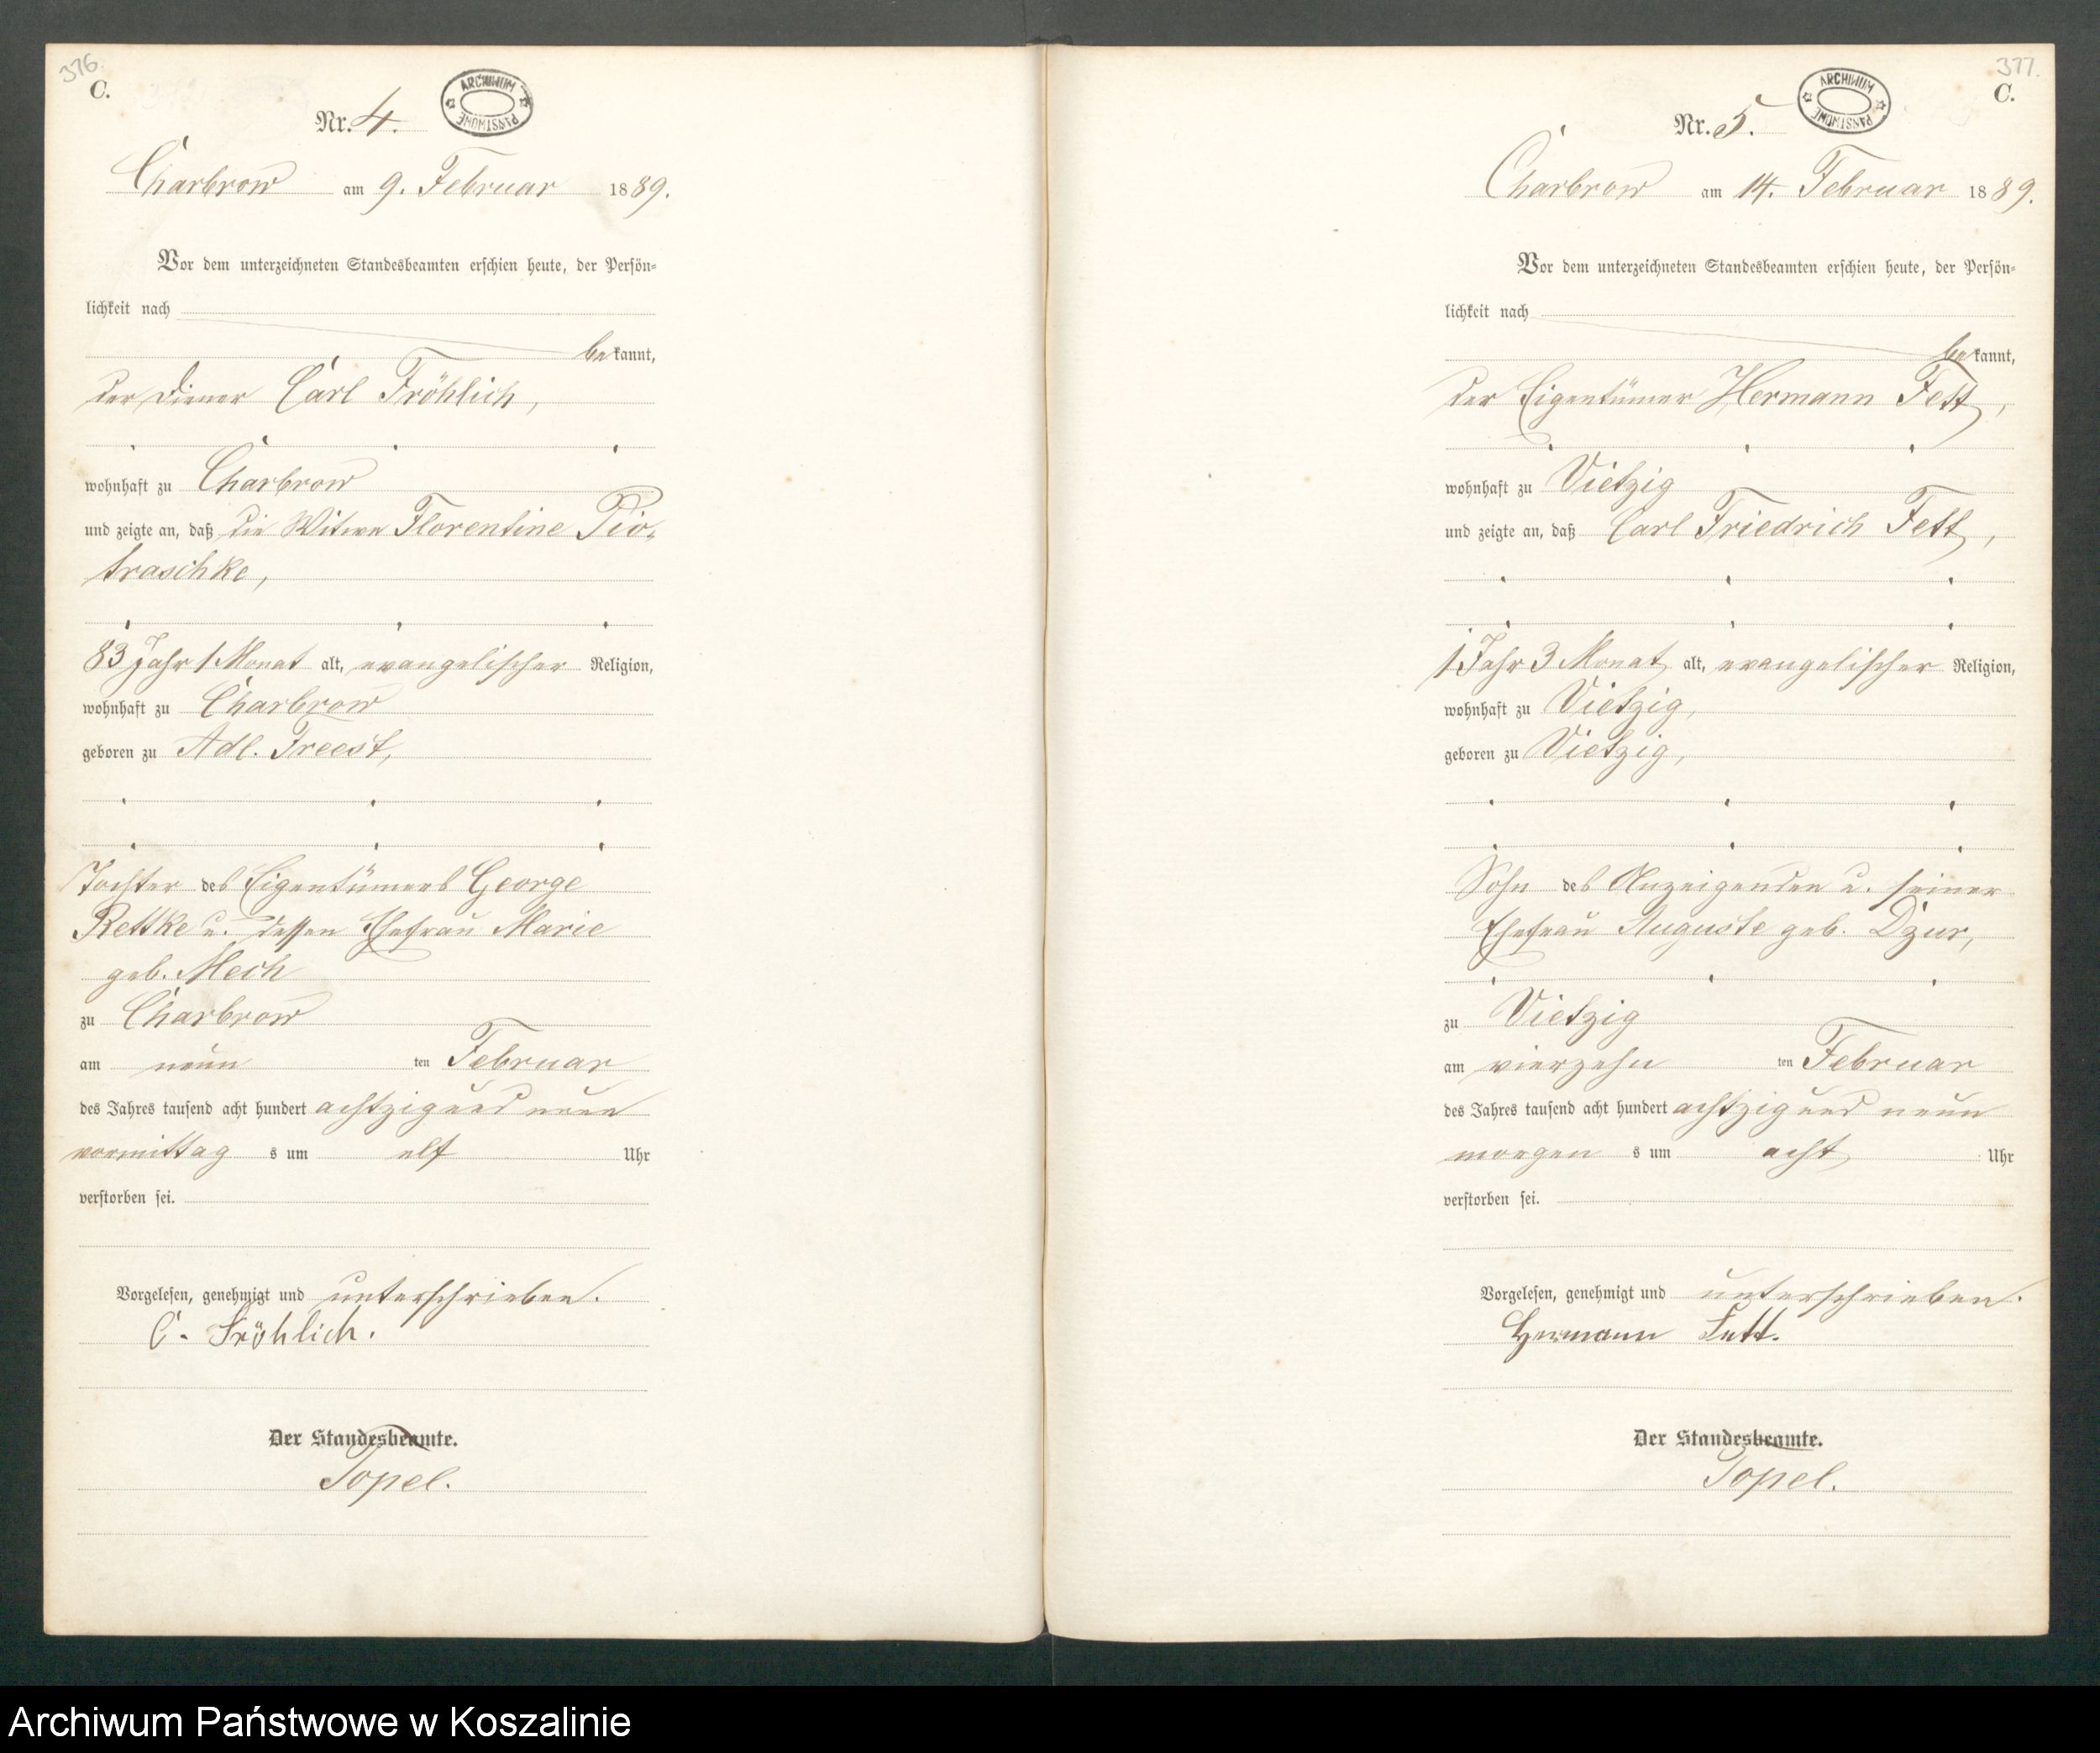 376.
C.
ARCHIWUM PAŃSTWOWE
Nr. 4.
Charbrow am 9. Februar 1889.
Vor dem unterzeichneten Standesbeamten erschien heute, der Persön-
lichkeit nach
bekannt,
der Diener Carl Fröhlich,
wohnhaft zu Charbrow
und zeigte an, daß die Witwe Florentine Pio-
traschke,
83 Jahr 1 Monat alt, evangelischer Religion,
wohnhaft zu Charbrow
geboren zu Adl. Freest,
Tochter des Eigentümers George
Rettke u. dessen Ehefrau Marie
geb. Mech
zu Charbrow
am neun ten Februar
des Jahres tausend acht hundert achtzig und neun
vormittag s um elf Uhr
verstorben sei.
Vorgelesen, genehmigt und unterschrieben.
C. Fröhlich.
Der Standesbeamte.
Topel.
377.
C.
ARCHIWUM PAŃSTWOWE
Nr. 5.
Charbrow am 14. Februar 1889.
Vor dem unterzeichneten Standesbeamten erschien heute, der Persön-
lichkeit nach
bekannt,
der Eigentümer Hermann Fett,
wohnhaft zu Vietzig
und zeigte an, daß Carl Friedrich Fett,
1 Jahr 3 Monat alt, evangelischer Religion,
wohnhaft zu Vietzig,
geboren zu Vietzig,
Sohn des Anzeigenden u. seiner
Ehefrau Auguste geb. Dzur,
zu Vietzig
am vierzehn ten Februar
des Jahres tausend acht hundert achtzig und neun
morgen s um acht Uhr
verstorben sei.
Vorgelesen, genehmigt und unterschrieben.
Hermann Fett.
Der Standesbeamte.
Topel.
Archiwum Państwowe w Koszalinie